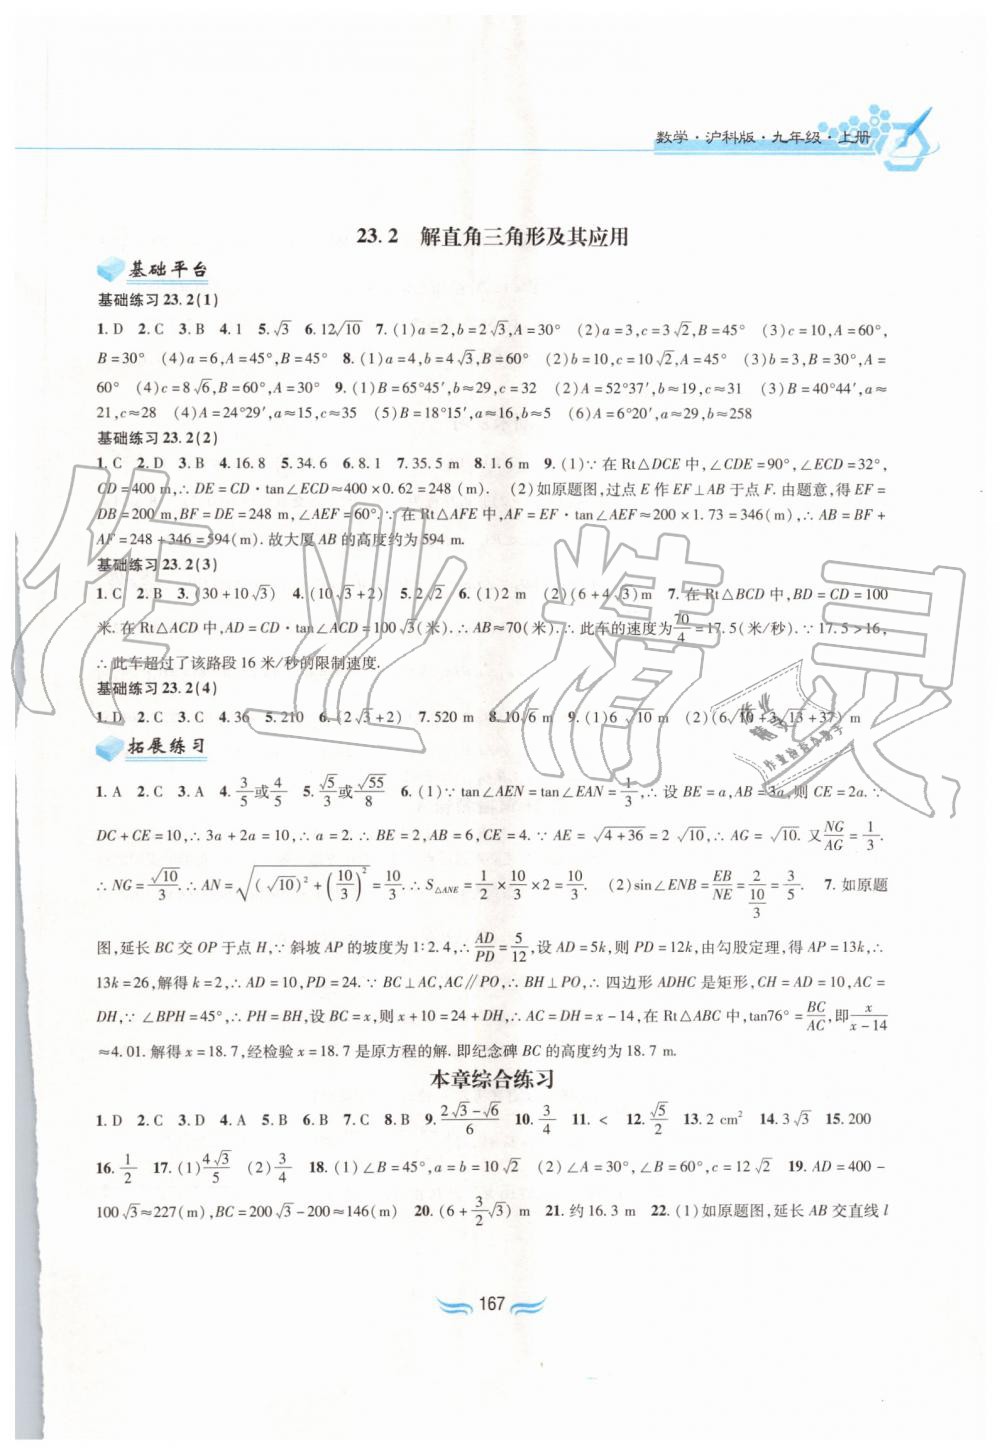 数学·沪科版·九年级·上册
23.2 解直角三角形及其应用
基础平台
基础练习23.2(1)
1. D 2. C 3. B 4. 1 5. √3 6. 12√10 7. (1)a=2,b=2√3,A=30° (2)a=3,c=3√2,B=45° (3)c=10,A=60°,
B=30° (4)a=6,A=45°,B=45° 8. (1)a=4,b=4√3,B=60° (2)b=10,c=10√2,A=45° (3)b=3,B=30°,A=
60° (4)c=8√6,B=60°,A=30° 9. (1)B=65°45′,b≈29,c=32 (2)A=52°37′,b≈19,c≈31 (3)B=40°44′,a≈
21,c≈28 (4)A=24°29′,a≈15,c≈35 (5)B=18°15′,a≈16,b≈5 (6)A=6°20′,a≈29,b≈258
基础练习23.2(2)
1. C 2. D 3. B 4. 16.8 5. 34.6 6. 8.1 7. 35.5 m 8. 1.6 m 9. (1)∵在Rt△DCE中,∠CDE=90°,∠ECD=32°,
CD=400 m,∴DE=CD·tan∠ECD≈400×0.62=248 (m). (2)如原题图,过点E作EF⊥AB于点F.由题意,得EF=
DB=200 m,BF=DE=248 m,∠AEF=60°.∵在Rt△AFE中,AF=EF·tan∠AEF≈200×1.73=346(m),∴AB=BF+
AF=248+346=594(m).故大厦AB的高度约为594 m.
基础练习23.2(3)
1. C 2. B 3. (30+10√3) 4. (10√3+2) 5. 2√2 6. (1)2 m (2)(6+4√3)m 7. 在Rt△BCD中,BD=CD=100
米.在Rt△ACD中,AD=CD·tan∠ACD=100√3(米).∴AB≈70(米).∴此车的速度为70/4=17.5(米/秒).∵17.5>16,
∴此车超过了该路段16米/秒的限制速度.
基础练习23.2(4)
1. D 2. C 3. C 4. 36 5. 210 6. (2√3+2) 7. 520 m 8. 10√6 m 9. (1)6√10 m (2)(6√10+3√13+37) m
拓展练习
1. A 2. C 3. A 4. 3/5或4/5 5. √5/3或√55/8 6. (1)∵tan∠AEN=tan∠EAN=1/3,∴设BE=a,AB=3a,则CE=2a.∵
DC+CE=10,∴3a+2a=10,∴a=2.∴BE=2,AB=6,CE=4.∵AE=√(4+36)=2√10,∴AG=√10.又NG/AG=1/3.
∴NG=√10/3.∴AN=√((√10)²+(10/3)²)=10/3.∴S△ANE=1/2×10/3×2=10/3. (2)sin∠ENB=EB/NE=2/(10/3)=3/5. 7. 如原题
图,延长BC交OP于点H,∵斜坡AP的坡度为1∶2.4,∴AD/PD=5/12,设AD=5k,则PD=12k,由勾股定理,得AP=13k,∴
13k=26,解得k=2,∴AD=10,PD=24.∵BC⊥AC,AC∥PO,∴BH⊥PO,∴四边形ADHC是矩形,CH=AD=10,AC=
DH,∵∠BPH=45°,∴PH=BH,设BC=x,则x+10=24+DH,∴AC=DH=x-14,在Rt△ABC中,tan76°=BC/AC,即x/(x-14)
≈4.01.解得x=18.7,经检验x=18.7是原方程的解.即纪念碑BC的高度约为18.7 m.
本章综合练习
1. D 2. C 3. D 4. A 5. B 6. B 7. C 8. B 9. (2√3-√6)/6 10. 3/4 11. < 12. √5/2 13. 2 cm² 14. 3√3 15. 200
16. 1/2 17. (1)4√3/5 (2)3/4 18. (1)∠B=45°,a=b=10√2 (2)∠A=30°,∠B=60°,c=12√2 19. AD=400-
100√3≈227(m),BC=200√3-200≈146(m) 20. (6+3/2√3) m 21. 约16.3 m 22. (1)如原题图,延长AB交直线l
167
作业精灵